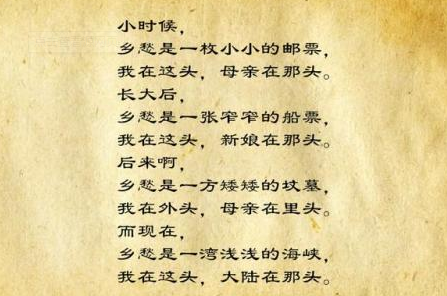 小时候，
乡愁是一枚小小的邮票，
我在这头，母亲在那头。
长大后，
乡愁是一张窄窄的船票，
我在这头，新娘在那头。
后来啊，
乡愁是一方矮矮的坟墓，
我在外头，母亲在里头。
而现在，
乡愁是一湾浅浅的海峡，
我在这头，大陆在那头。